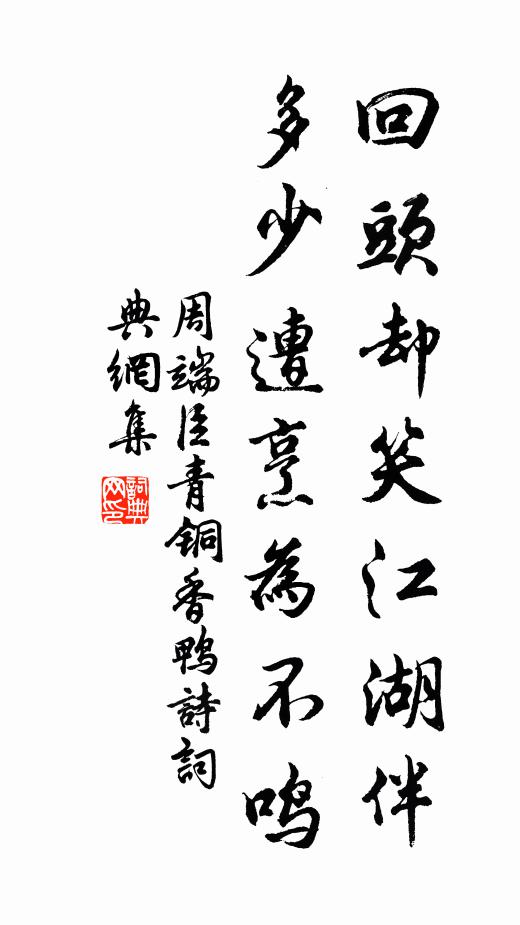 回頭却笑江湖伴
多少遭烹為不鸣
周端臣青铜香鸭詩詞
典網集
詞典
网印